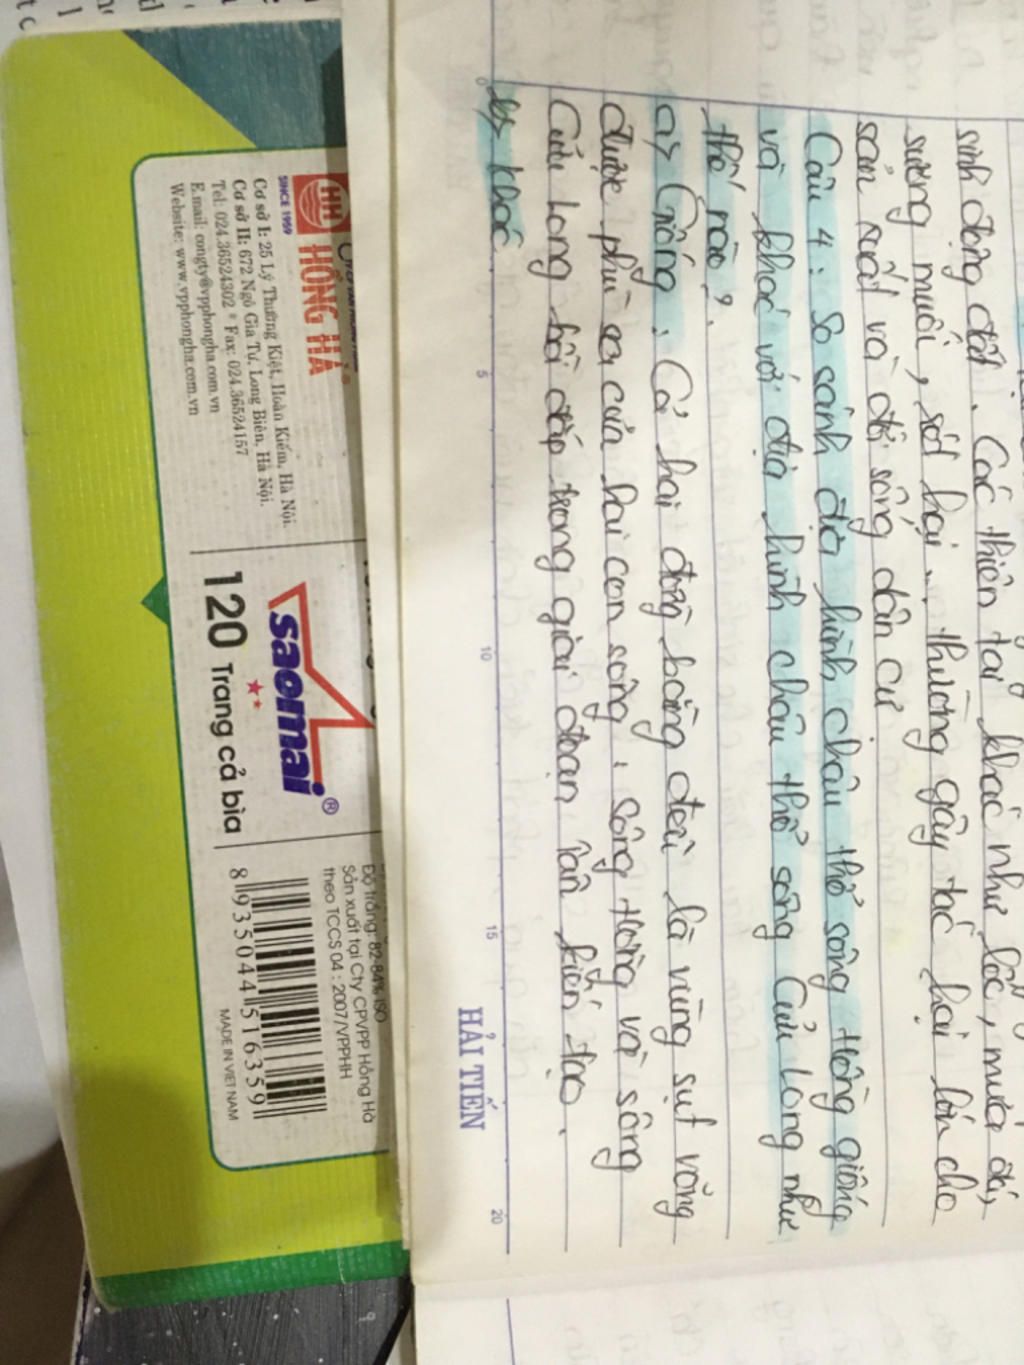 sinh động đất. Các thiên tai khác như lốc, mưa đá,
sương muối, sét hại... thường gây tác hại lớn cho
sản xuất và đời sống dân cư
Câu 4: So sánh địa hình châu thổ sông Hồng giống
và khác với địa hình châu thổ sông Cửu Long như
thế nào?
a> Giống. Cả hai đồng bằng đều là vùng sụt võng
được phù sa của hai con sông, sông Hồng và sông
Cửu Long bồi đắp trong giai đoạn Tân kiến tạo.
b> khác
0 5 10 15 20
HẢI TIẾN
HH HỒNG HÀ
SINCE 1959
Cơ sở I: 25 Lý Thường Kiệt, Hoàn Kiếm, Hà Nội.
Cơ sở II: 672 Ngô Gia Tự, Long Biên, Hà Nội.
Tel: 024.36524302 * Fax: 024.36524157
E.mail: congty@vpphongha.com.vn
Website: www.vpphongha.com.vn
saomai ®
120 Trang cả bìa
Độ trắng: 82-84% ISO
Sản xuất tại Cty CPVPP Hồng Hà
theo TCCS 04 : 2007/VPPHH
8 935044 516359
MADE IN VIET NAM